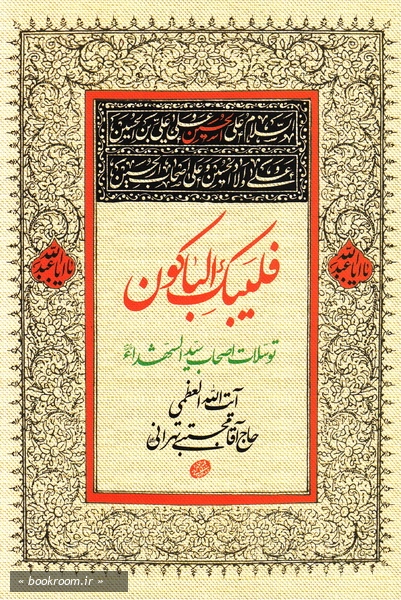 السلام علی الحسین و علی علی بن الحسین
و علی اولاد الحسین و علی اصحاب الحسین
یا ابا عبدالله
یا ابا عبدالله
فلیبک الباکون
توسلات اصحاب سید الشهداء
آیت الله العظمی
حاج آقا مجتبی تهرانی
« bookroom.ir »